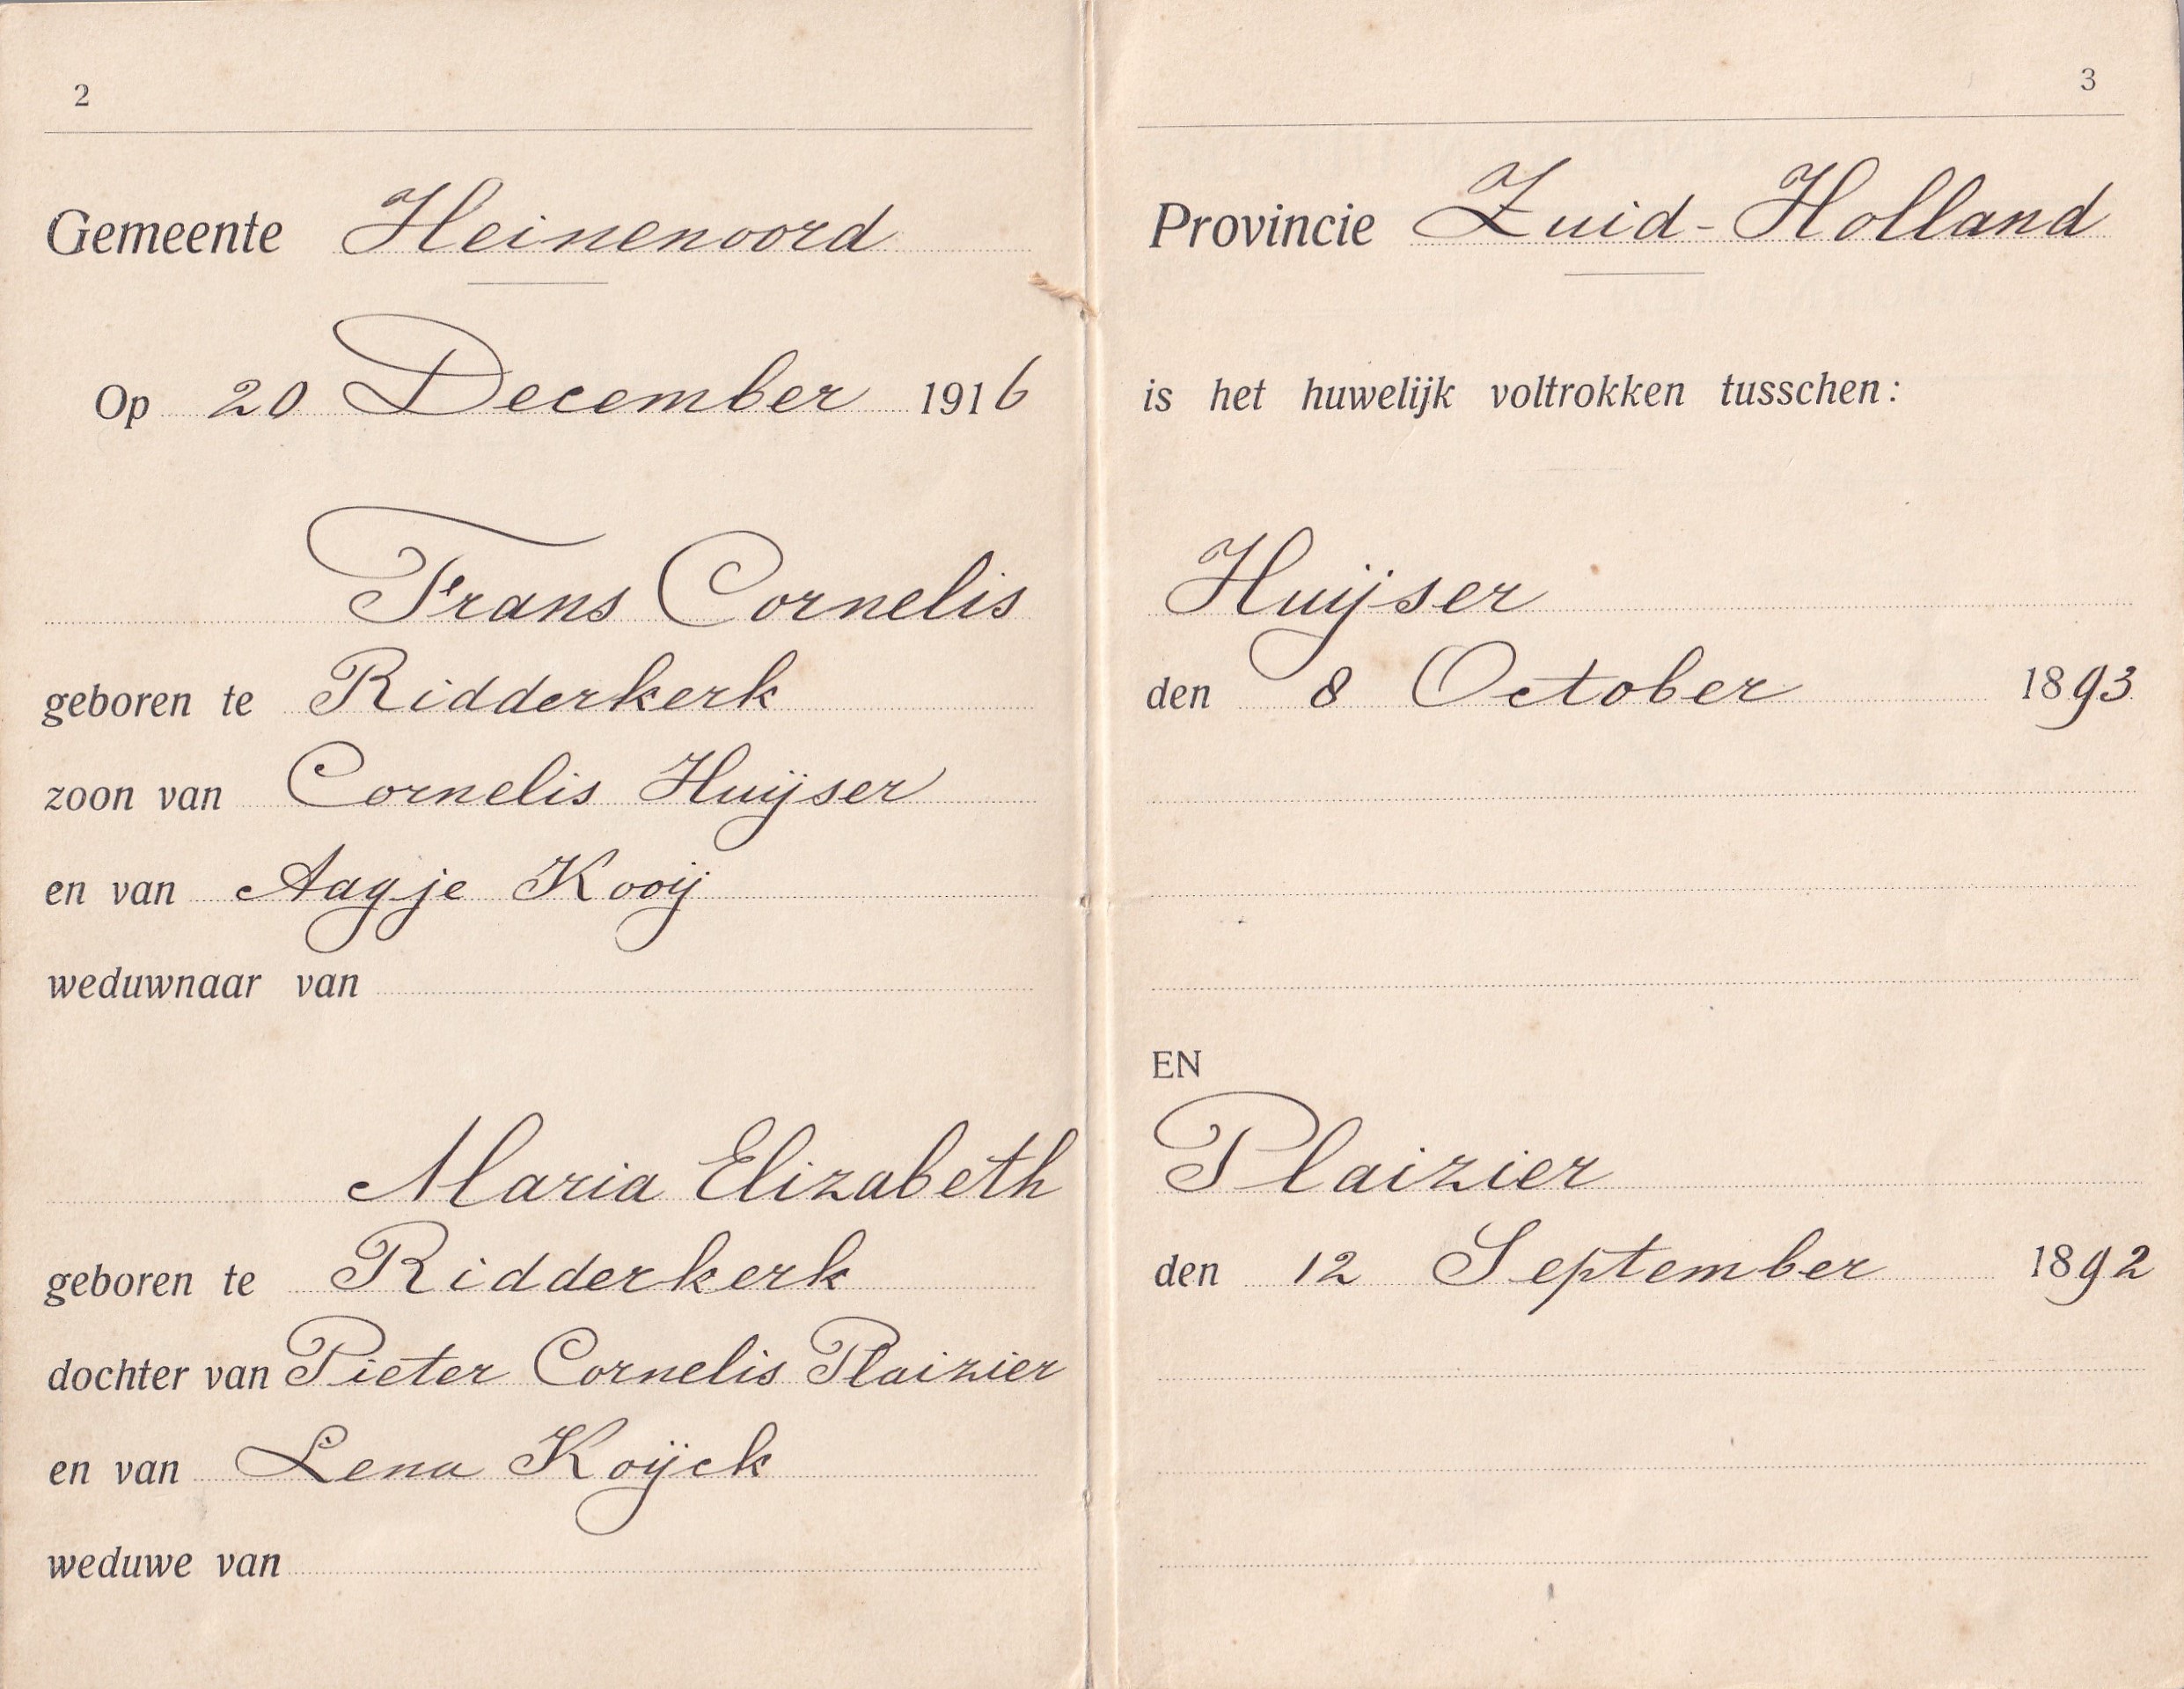 2
Gemeente Heinenoord
Op 20 December 1916
Frans Cornelis
geboren te Ridderkerk
zoon van Cornelis Huijser
en van Aagje Kooij
weduwnaar van
Maria Elizabeth
geboren te Ridderkerk
dochter van Pieter Cornelis Plaizier
en van Lena Koijck
weduwe van
3
Provincie Zuid-Holland
is het huwelijk voltrokken tusschen:
Huijser
den 8 October 1893
EN
Plaizier
den 12 September 1892